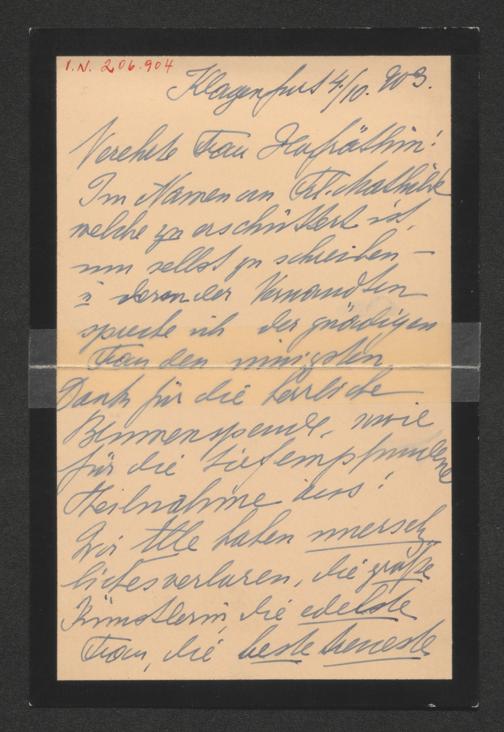 I.N. 206.904
Klagenfurt 4/10. 903.
Verehrte Frau Hofräthin!
Im Namen von Frl. Mathilde
welche zu erschüttert ist,
um selbst zu schreiben –
u. deren der Verwandten
spreche ich der gnädigen
Frau den innigsten
Dank für die herrliche
Blumenspende, sowie
für die tiefempfundene
Theilnahme aus!
Wir Alle haben unersetz
liches verloren, die große
Künstlerin, die edelste
Frau, die beste treueste